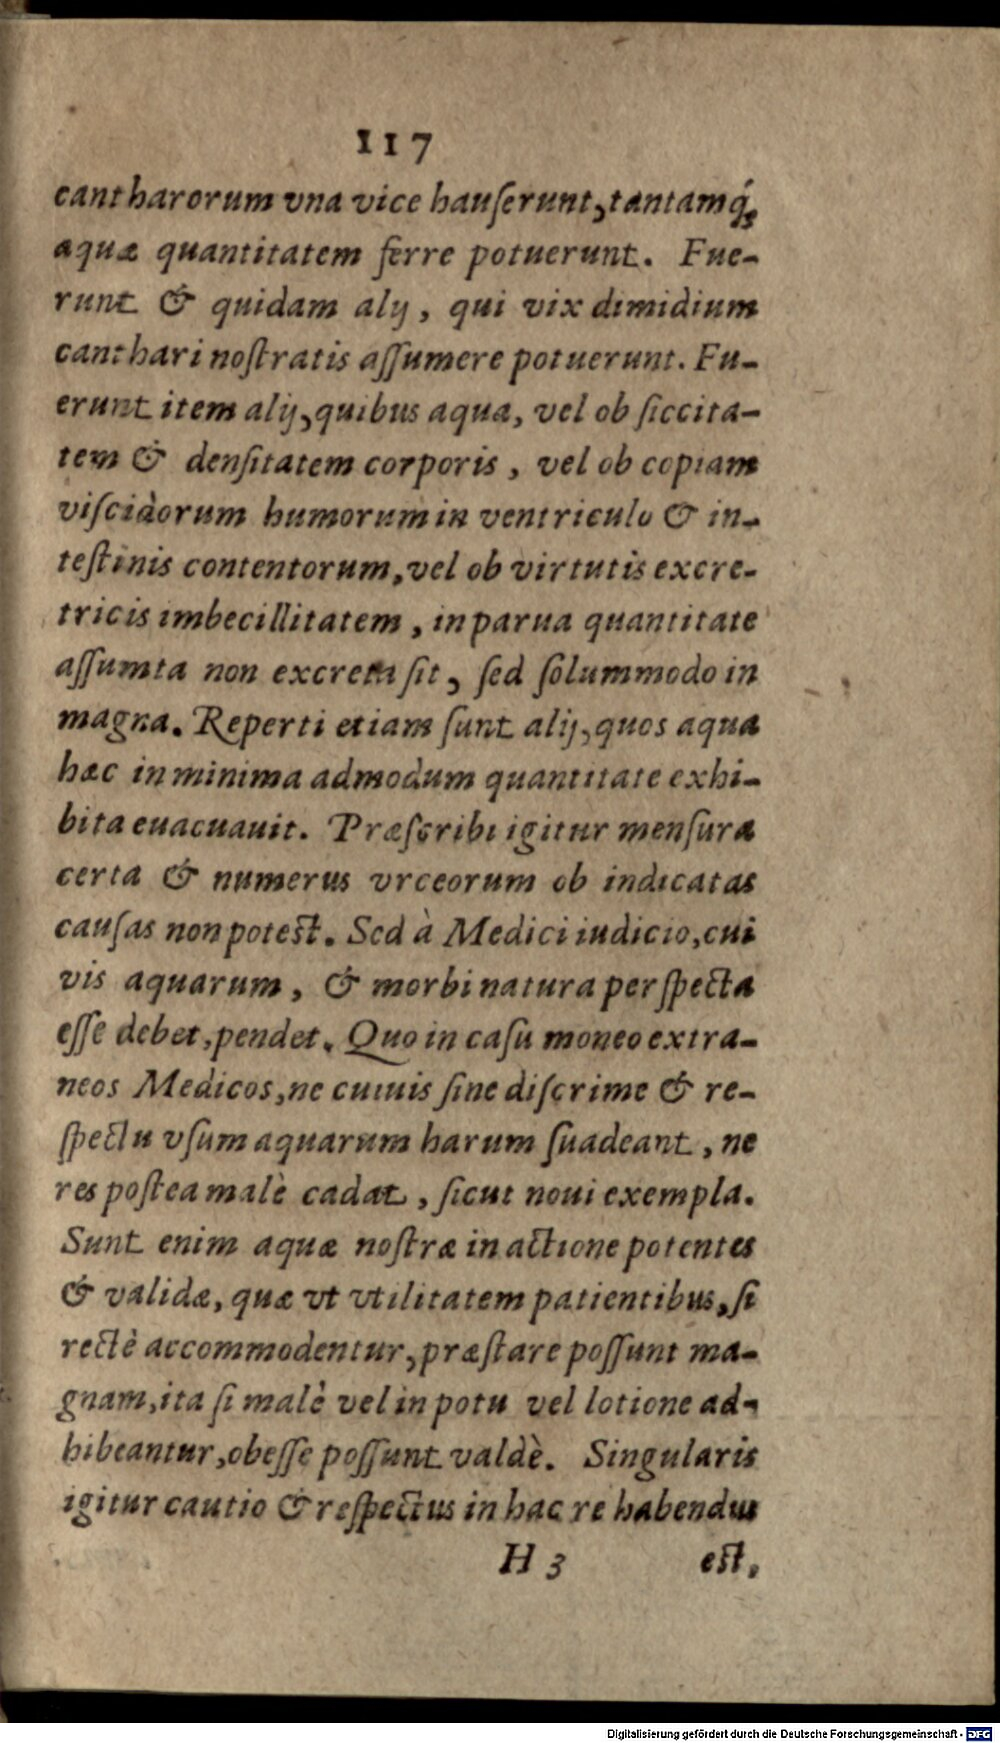 117
cantharorum vna vice hauſerunt, tantamq́;
aquæ quantitatem ferre potuerunt. Fue-
runt & quidam alij, qui vix dimidium
canthari noſtratis aſſumere potuerunt. Fu-
erunt item alij, quibus aqua, vel ob ſiccita-
tem & denſitatem corporis, vel ob copiam
viſcidorum humorum in ventriculo & in-
teſtinis contentorum, vel ob virtutis excre-
tricis imbecillitatem, in parua quantitate
aſſumta non excreta ſit, ſed ſolummodo in
magna. Reperti etiam ſunt alij, quos aqua
hæc in minima admodum quantitate exhi-
bita euacuauit. Præſcribi igitur menſura
certa & numerus vrceorum ob indicatas
cauſas non poteſt. Sed à Medici iudicio, cui
vis aquarum, & morbi natura perſpecta
eſſe debet, pendet. Quo in caſu moneo extra-
neos Medicos, ne cuiuis ſine diſcrime & re-
ſpectu vſum aquarum harum ſuadeant, ne
res poſtea malè cadat, ſicut noui exempla.
Sunt enim aquæ noſtræ in actione potentes
& validæ, quæ vt vtilitatem patientibus, ſi
rectè accommodentur, præſtare poſſunt ma-
gnam, ita ſi malè vel in potu vel lotione ad-
hibeantur, obeſſe poſſunt valdè. Singularis
igitur cautio & reſpectus in hac re habendus
H 3 eſt,
Digitalisierung gefördert durch die Deutsche Forschungsgemeinschaft - DFG